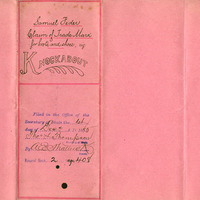 Samuel Feder
Claim of Trade Mark
for boots and shoes, of
KNOCKABOUT
Filed in the Office of the
Secretary of State the 1st
day of 188
By
Record Book 2 page 408